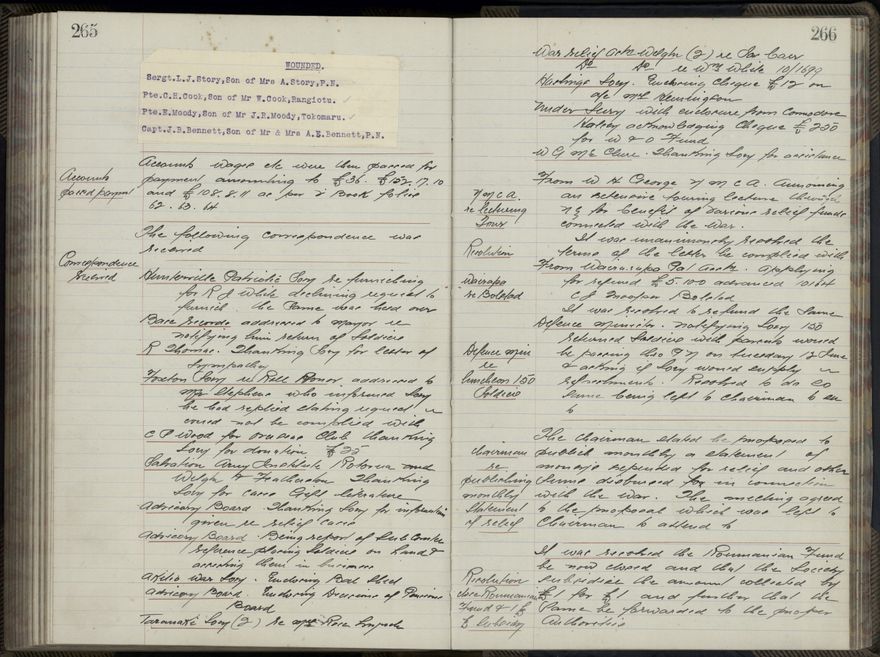 265
WOUNDED.
Sergt.L.J.Story,Son of Mrs A.Story,P.N.
Pte.C.H.Cook,Son of Mr W.Cook,Rangiotu.
Pte.E.Moody,Son of Mr J.R.Moody,Tokomaru.
Capt.J.B.Bennett,Son of Mr & Mrs A.E.Bennett,P.N.
Accounts
passed payment
Accounts wages etc were then passed for
payment amounting to £36. £152.17.10
and £108.8.11 as per Book folio
62. 63. 64
The following correspondence was
received
Correspondence
received
Hunterville Patriotic Socy re furnishing
for R J White declining request to
furnish. the same was held over
Base records addressed to Mayor re
notifying him return of Soldiers
R Thomas. Thanking Socy for letter of
Sympathy
Foxton Socy re Roll Honor, addressed to
Mr Stephens who informed Socy
he had replied stating request
could not be complied with
C P Wood for overseas Club thanking
Socy for donation £25
Salvation Army Institute Rotorua and
Welgtn & Featherston Thanking
Socy for cases Gift literature
Advisory Board. Thanking Socy for information
given re relief cases
Advisory Board Being report of Sub Comtee
reference placing Soldiers on land &
assisting them in business
Advisory Board. Enclosing Decisions of Pensions
Board
Taranaki Socy (2) re
266
War relief Welgtn (2) re
Do Do re Wm White 10/1699
Hastings Socy. Enclosing Cheque £12 on
a/c Mr Kensington
Under Secy with enclosure from Commodore
acknowledging Cheque £250
for W & O Fund
W G Mc Clure. Thanking Socy for assistance
Y M C A
re lecturing
Tour
From W H George Y M C A. Announcing
an extensive touring lecture through
N Z for benefit of various relief funds
connected with the war.
Resolution
It was unanimously resolved the
terms of the letter be complied with
Wairarapa
re
From Wairarapa Pat Socty. applying
for refund £5.10.0 advanced
C J Trooper
It was resolved to refund the same
Defence Min
re
luncheon 150
Soldiers
Defence Minister. notifying Socy 150
returned Soldiers with parents would
be passing thro P N on Tuesday 12 June
& asking if Socy would supply
refreshments. Resolved to do so
same being left to Chairman to
Chairman
re
publishing
monthly
statement
of relief
The Chairman stated he proposed to
publish monthly a statement of
moneys expended for relief and other
sums disbursed in connection
with the war. The meeting agreed
to the proposal which was left to
Chairman to attend to
Resolution
close Roumanian
Fund & £1 £
£ Subsidy
It was resolved the Roumanian Fund
be now closed and that the Society
subsidise the amount collected by
£1 for £1 and further that the
same be forwarded to the proper
Authorities